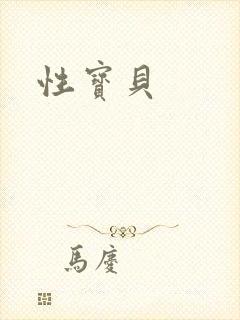 性寶貝
馬慶